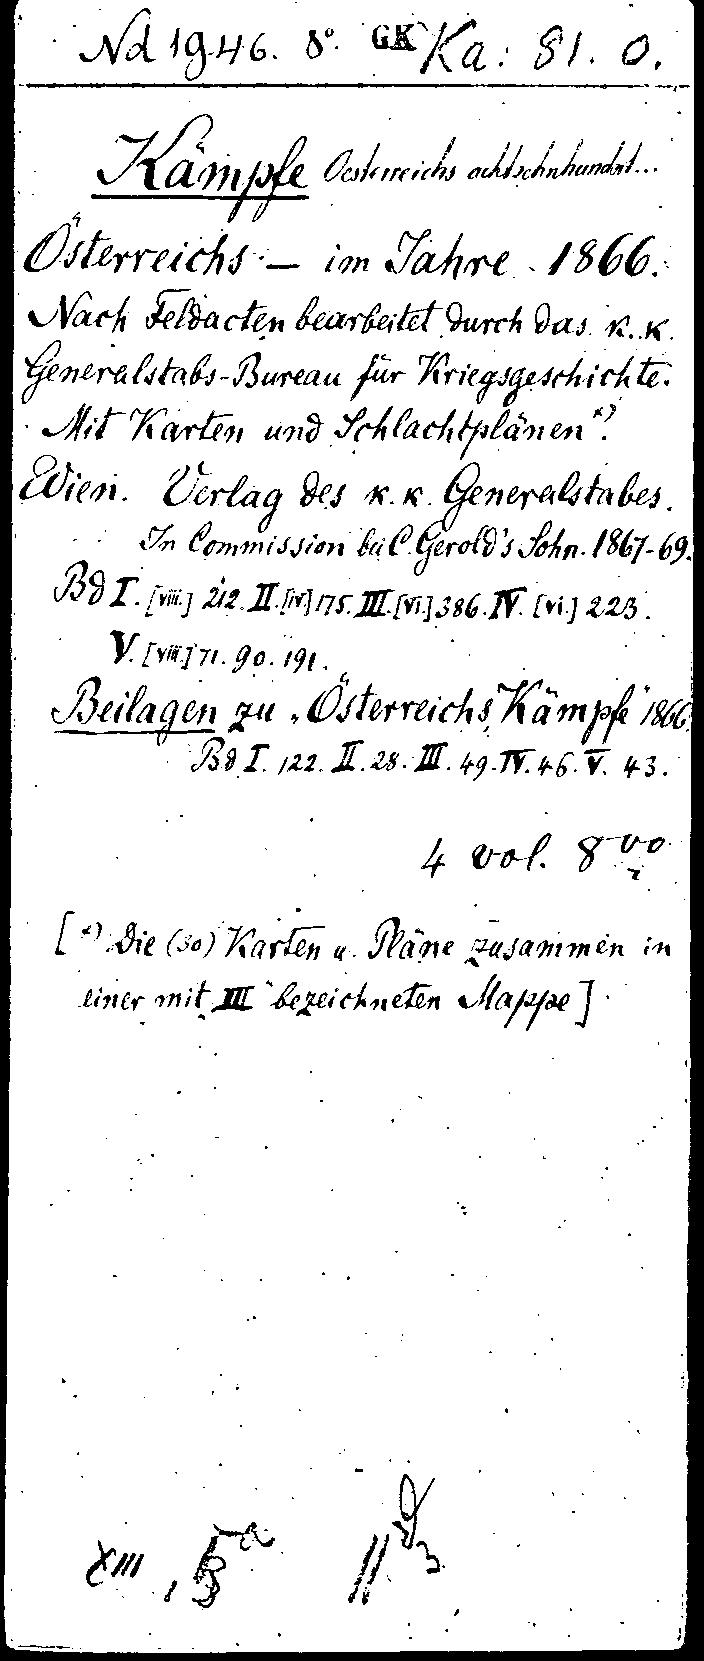 Nd 1946. 8°. GK Ka: 81. 0.
Kämpfe Oesterreichs achtzehnhundert...
Österreichs — im Jahre 1866.
Nach Feldacten bearbeitet durch das k. k.
Generalstabs-Bureau für Kriegsgeschichte.
Mit Karten und Schlachtplänen *).
Wien. Verlag des k. k. Generalstabes.
In Commission bei C. Gerold's Sohn. 1867-69.
Bd I. [viii.] 212. II. [iv] 175. III. [vi.] 386. IV. [vi.] 223.
V. [viii.] 71. 90. 191.
Beilagen zu „Österreichs Kämpfe" 1866.
Bd I. 122. II. 28. III. 49. IV. 46. V. 43.
4 vol. 8vo
[*) Die (30) Karten u. Pläne zusammen in
einer mit III bezeichneten Mappe]
XIII